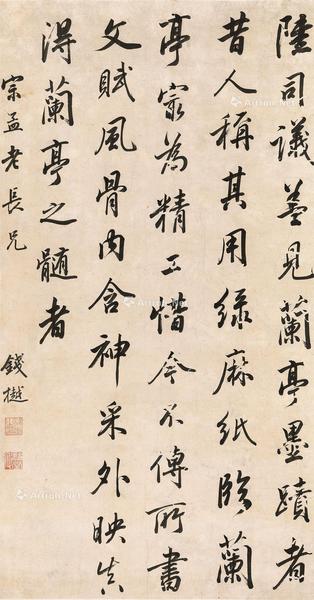 陸司議蓋見蘭亭墨蹟者
昔人稱其用綠麻紙臨蘭
亭寂為精工惜今不傳所書
文賦風骨内含神采外映真
得蘭亭之髓者
宗孟老長兄
錢樾